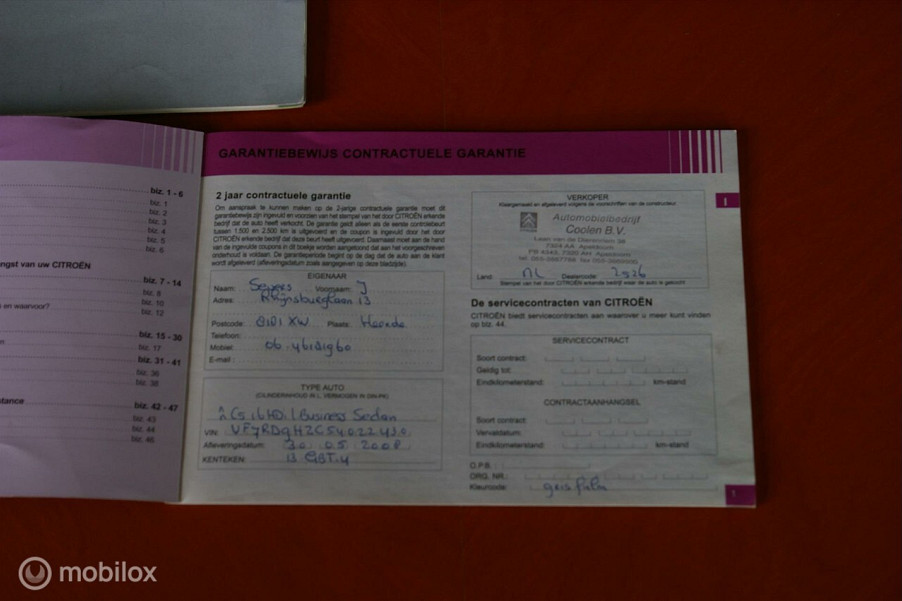 blz. 1 - 6
blz. 1
blz. 2
blz. 3
blz. 4
blz. 5
blz. 6
ngst van uw CITROËN
blz. 7 - 14
blz. 8
en waarvoor?
blz. 10
blz. 12
blz. 15 - 30
blz. 17
blz. 31 - 41
blz. 36
blz. 38
stance
blz. 42 - 47
blz. 43
blz. 44
blz. 45
GARANTIEBEWIJS CONTRACTUELE GARANTIE
2 jaar contractuele garantie
Om aanspraak te kunnen maken op de 2-jarige contractuele garantie moet dit
garantiebewijs zijn ingevuld en voorzien van het stempel van het door CITROËN erkende
bedrijf dat de auto heeft verkocht. De garantie geldt alleen als de eerste controlebeurt
tussen 1.500 en 2.500 km is uitgevoerd en de coupon is ingevuld door het door
CITROËN erkende bedrijf dat deze beurt heeft uitgevoerd. Daarnaast moet aan de hand
van de ingevulde coupons in dit boekje worden aangetoond dat aan het voorgeschreven
onderhoud is voldaan. De garantieperiode begint op de dag dat de auto aan de klant
wordt afgeleverd (afleveringsdatum zoals aangegeven op deze bladzijde).
EIGENAAR
Naam: Voornaam: J
Adres: 13
Postcode: Plaats: Heerde
Telefoon:
Mobiel:
E-mail :
TYPE AUTO
(CILINDERINHOUD IN L, VERMOGEN IN DIN-PK)
Business Sedan
VIN:
Afleveringsdatum: 30 . 05 . 2008
KENTEKEN:
VERKOPER
Klaargemaakt en afgeleverd volgens de voorschriften van de constructeur
CITROËN
Automobielbedrijf
Coolen B.V.
Laan van de Dierenriem 36
7324 AA Apeldoorn
Land: NL Dealercode: 2926
Stempel van het door CITROËN erkende bedrijf waar de auto is gekocht
I
De servicecontracten van CITROËN
CITROËN biedt servicecontracten aan waarover u meer kunt vinden
op blz. 44.
SERVICECONTRACT
Soort contract:
Geldig tot:
Eindkilometerstand: km-stand
CONTRACTAANHANGSEL
Soort contract:
Vervaldatum:
Eindkilometerstand: km-stand
O.P.B.:
ORG. NR.:
Kleurcode: gris fulm
1
mobilox